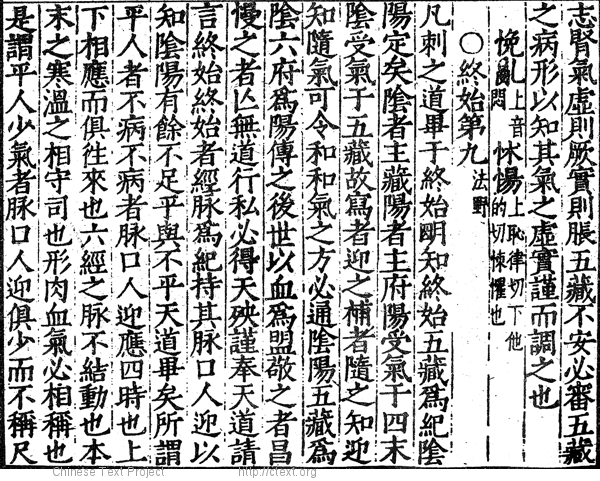 志腎氣虛則厥實則脹五藏不安必審五藏
之病形以知其氣之虛實謹而調之也
悗亂上音悶怵惕上恥律切下他的切悚懼也
○終始第九法野
凡刺之道畢于終始明知終始五藏爲紀陰
陽定矣陰者主藏陽者主府陽受氣于四末
陰受氣于五藏故寫者迎之補者隨之知迎
知隨氣可令和和氣之方必通陰陽五藏爲
陰六府爲陽傳之後世以血爲盟敬之者昌
慢之者亡無道行私必得天殃謹奉天道請
言終始終始者經脉爲紀持其脉口人迎以
知陰陽有餘不足平與不平天道畢矣所謂
平人者不病不病者脉口人迎應四時也上
下相應而俱徃來也六經之脉不結動也本
末之寒溫之相守司也形肉血氣必相稱也
是謂平人少氣者脉口人迎俱少而不稱尺
Chinese Text Project http://ctext.org